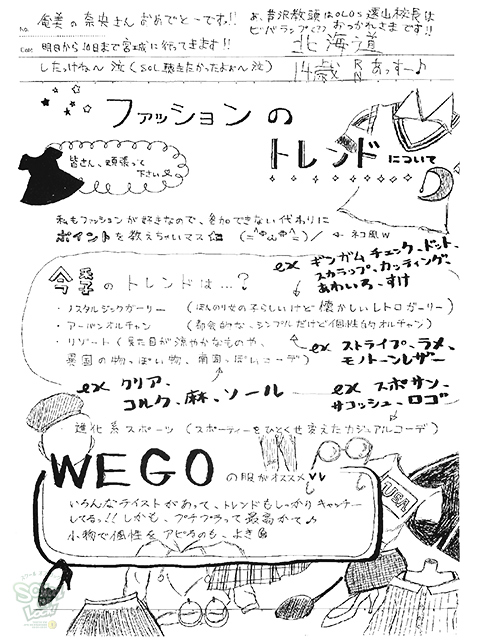 奄美の奈央さんおめでとーです!!
あ、芦沢教頭はOLDS遠山校長は
ビバランプ
おつかれさまです!!
No.
Date
明日から10日まで宮城に行ってきます!!
北海道
したっけね〜 泣 (SOL聴きたかったよぉ〜泣)
14歳 RN あっすー♪
ファッションの
トレンドについて
皆さん、頑張って
下さい
私もファッションが好きなので、参加できない代わりに
ポイントを教えちゃいマス (=^ω^=)/ ← ネコ風w
ex ギンガムチェック、ドット、
スカラップ、カッティング、
あわいろ、すけ
今季のトレンドは…?
・ノスタルジックガーリー (ほんのり女の子らしいけど懐かしいレトロガーリー)
・アーバンオルチャン (都会的な、シンプルだけど個性的オルチャン)
・リゾート (見た目が涼やかなものや、
異国の物っぽい物、南国っぽいコーデ)
ex ストライプ、ラメ、
モノトーンレザー
ex クリア、
コルク、麻、ソール
ex スポサン、
サコッシュ、ロゴ
進化系スポーツ (スポーティーをひとくせ変えたカジュアルコーデ)
WEGOの服がオススメ♥♥
USA
いろんなテイストがあって、トレンドもしっかりキャッチー
してるっ!! しかも、プチプラって最高かて♪
小物で個性をアピるのも、よき